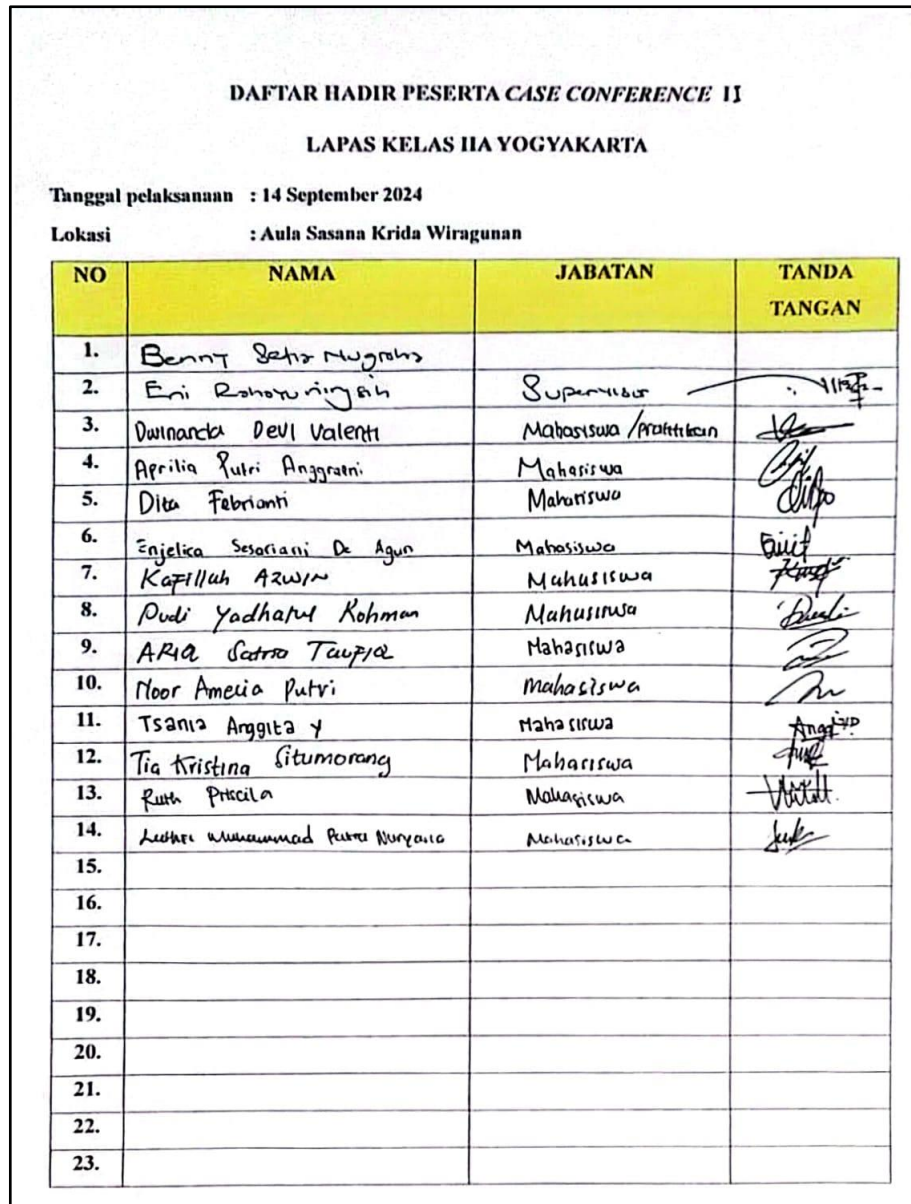 DAFTAR HADIR PESERTA CASE CONFERENCE II
LAPAS KELAS IIA YOGYAKARTA
Tanggal pelaksanaan : 14 September 2024
Lokasi : Aula Sasana Krida Wiragunan
NO NAMA JABATAN TANDA TANGAN
1. Benny Setia Nugroho
2. Eni Rahayuningsih Supervisor
3. Dwinanda Devi Valenti Mahasiswa / Praktikan
4. Aprilia Putri Anggraeni Mahasiswa
5. Dita Febrianti Mahasiswa
6. Enjelica Sesariani De Agun Mahasiswa
7. Kafillah AZWIN Mahasiswa
8. Dudi Yadhatul Rohman Mahasiswa
9. ARIQ Satrio TaufIQ Mahasiswa
10. Noor Amelia Putri Mahasiswa
11. Tsania Anggita Y Mahasiswa
12. Tia Kristina Situmorang Mahasiswa
13. Ruth Priscila Mahasiswa
14. Muhammad Putra Mahasiswa
15.
16.
17.
18.
19.
20.
21.
22.
23.